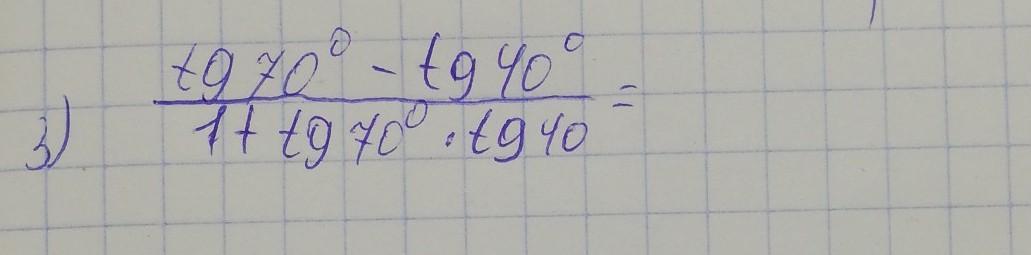 tg 70° - tg 40°
3) =
1 + tg 70° · tg 40